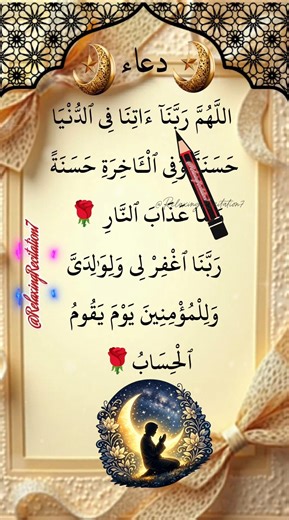 دعاء
اللَّهُمَّ رَبَّنَآ ءَاتِنَا فِى ٱلدُّنْيَا
حَسَنَةً وَفِى ٱلْـَٔاخِرَةِ حَسَنَةً
عَذَابَ ٱلنَّارِ
رَبَّنَا ٱغْفِرْ لِى وَلِوَٰلِدَىَّ
وَلِلْمُؤْمِنِينَ يَوْمَ يَقُومُ
ٱلْحِسَابُ
@RelaxingRecitation7
@RelaxingRecitation7